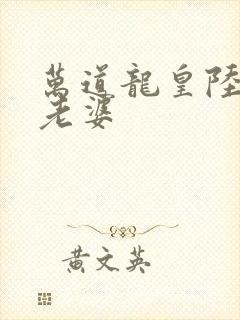 萬道龍皇陸
老婆
黃文英